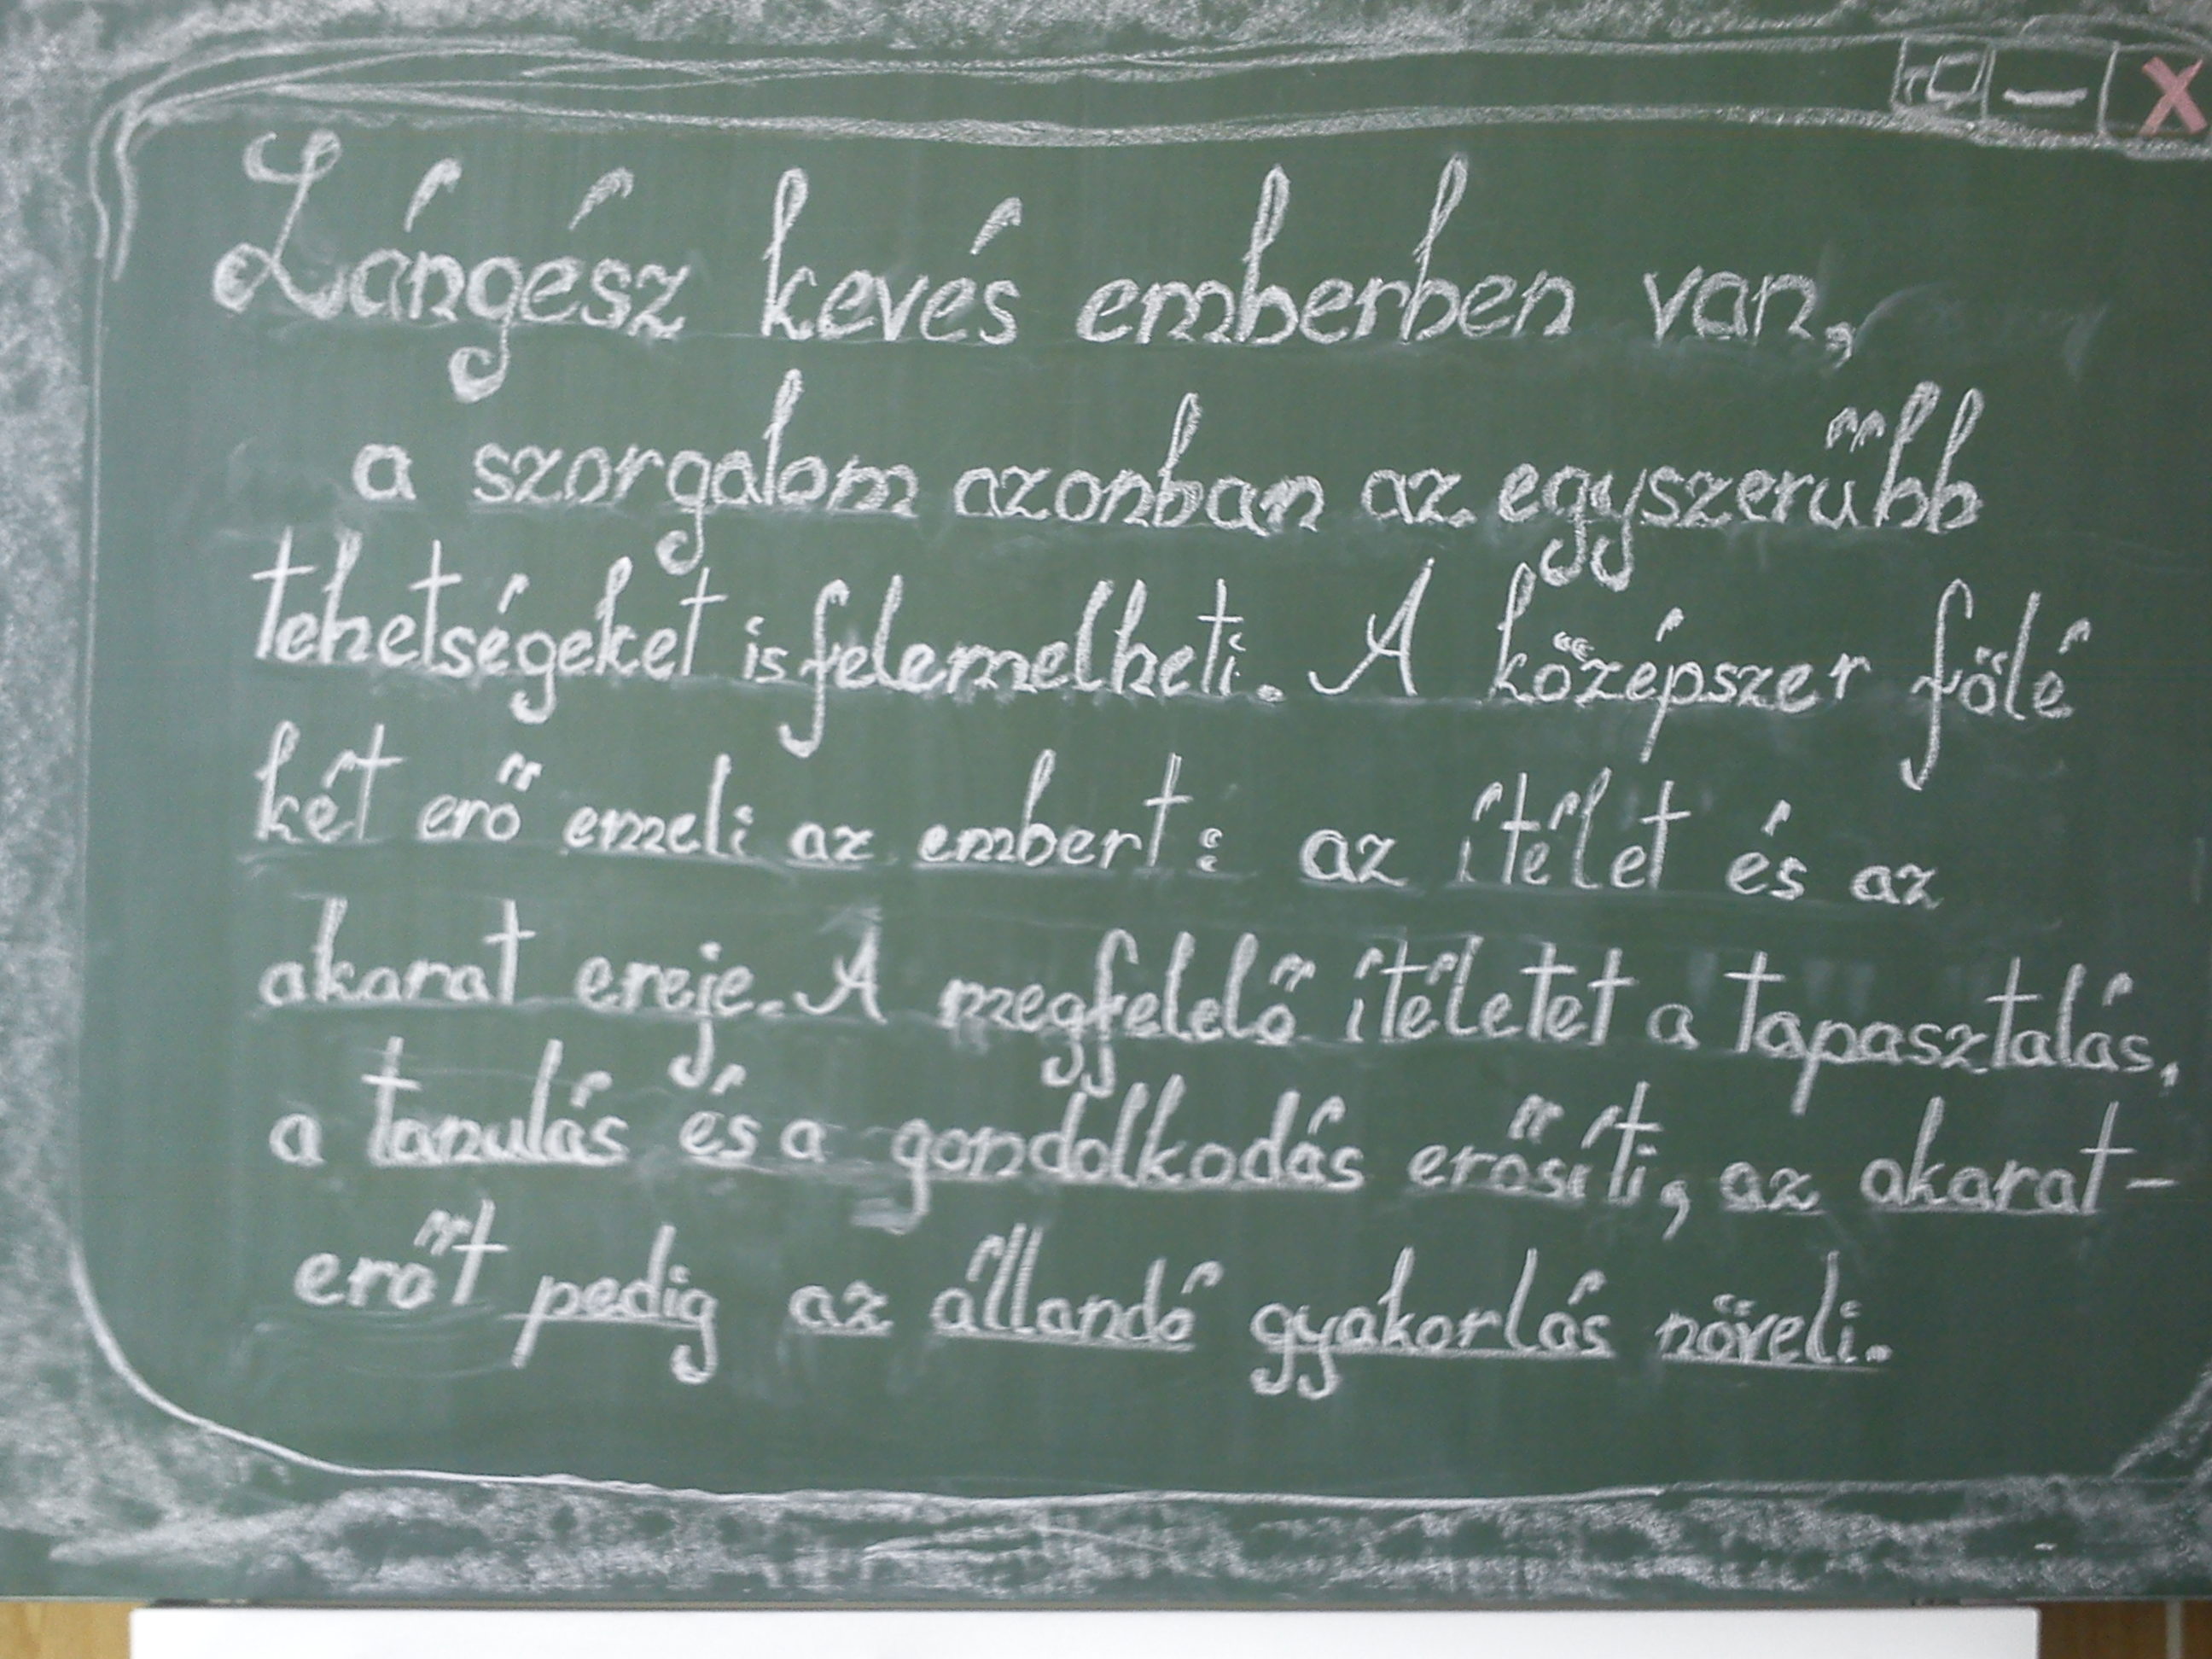 Lángész kevés emberben van,
a szorgalom azonban az egyszerűbb
tehetségeket is felemelheti. A középszer fölé
két erő emeli az embert: az ítélet és az
akarat ereje. A megfelelő ítéletet a tapasztalás,
a tanulás és a gondolkodás erősíti, az akarat-
erőt pedig az állandó gyakorlás növeli.